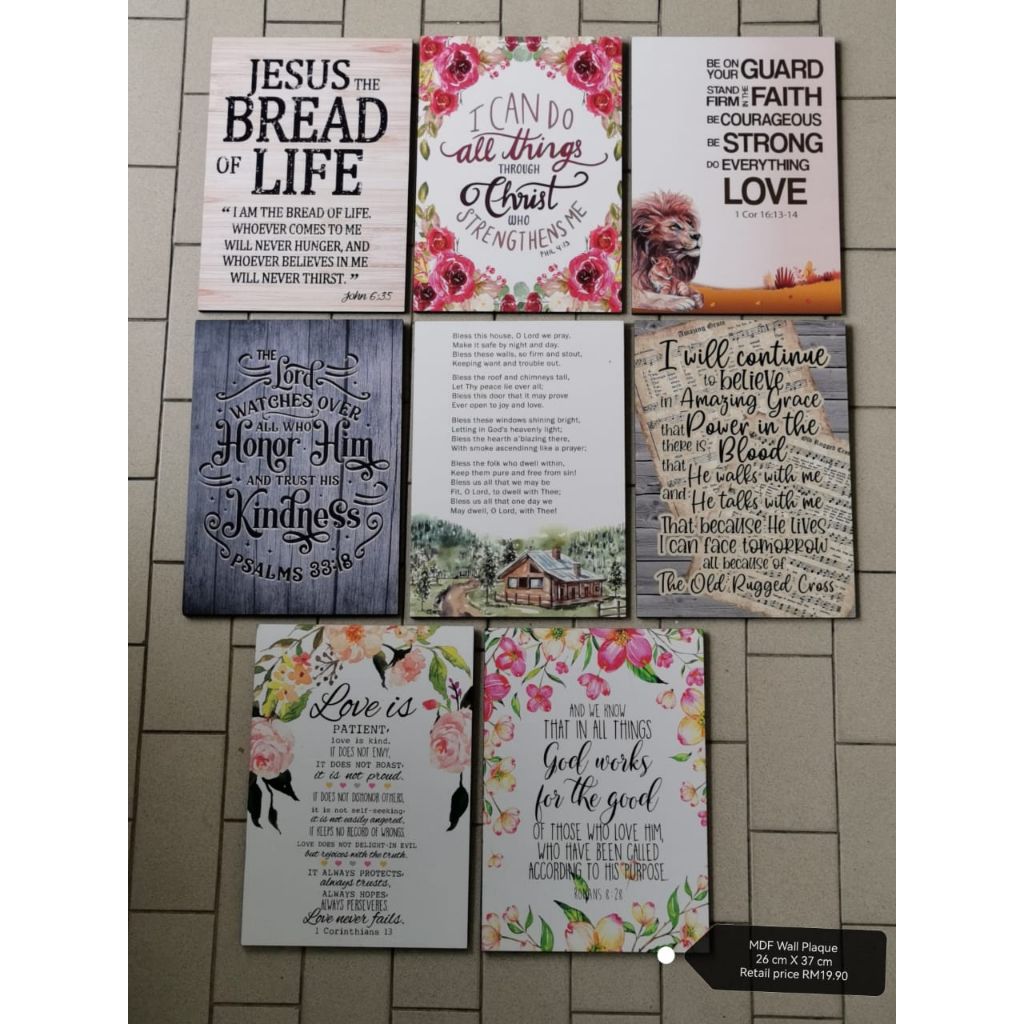 JESUS THE
BREAD
OF LIFE
“ I AM THE BREAD OF LIFE.
WHOEVER COMES TO ME
WILL NEVER HUNGER, AND
WHOEVER BELIEVES IN ME
WILL NEVER THIRST. ”
John 6:35
I CAN DO
all things
THROUGH
Christ
WHO
STRENGTHENS ME
PHIL 4:13
BE ON YOUR GUARD
STAND FIRM IN THE FAITH
BE COURAGEOUS
BE STRONG
DO EVERYTHING
LOVE
1 Cor 16:13-14
THE
Lord
WATCHES OVER
ALL WHO
Honor Him
AND TRUST HIS
Kindness
PSALMS 33:18
Bless this house, O Lord we pray,
Make it safe by night and day.
Bless these walls, so firm and stout,
Keeping want and trouble out.
Bless the roof and chimneys tall,
Let Thy peace lie over all;
Bless this door that it may prove
Ever open to joy and love.
Bless these windows shining bright,
Letting in God's heavenly light;
Bless the hearth a'blazing there,
With smoke ascendinng like a prayer;
Bless the folk who dwell within,
Keep them pure and free from sin!
Bless us all that we may be
Fit, O Lord, to dwell with Thee;
Bless us all that one day we
May dwell, O Lord, with Thee!
Amazing Grace
I will continue
to believe
in Amazing Grace
that Power in the
there is Blood
that He walks with me
and He talks with me
That because He lives
I can face tomorrow
all because of
The Old Rugged Cross
Old Rugged Cross
Love is
PATIENT,
love is kind.
IT DOES NOT ENVY,
IT DOES NOT BOAST,
it is not proud.
IT DOES NOT DISHONOR OTHERS,
it is not self-seeking,
it is not easily angered,
IT KEEPS NO RECORD OF WRONGS.
LOVE DOES NOT DELIGHT IN EVIL
but rejoices with the truth.
IT ALWAYS PROTECTS,
always trusts,
ALWAYS HOPES,
ALWAYS PERSEVERES.
Love never fails.
1 Corinthians 13
AND WE KNOW
THAT IN ALL THINGS
God works
for the good
OF THOSE WHO LOVE HIM,
WHO HAVE BEEN CALLED
ACCORDING TO HIS PURPOSE.
ROMANS 8:28
MDF Wall Plaque
26 cm X 37 cm
Retail price RM19.90